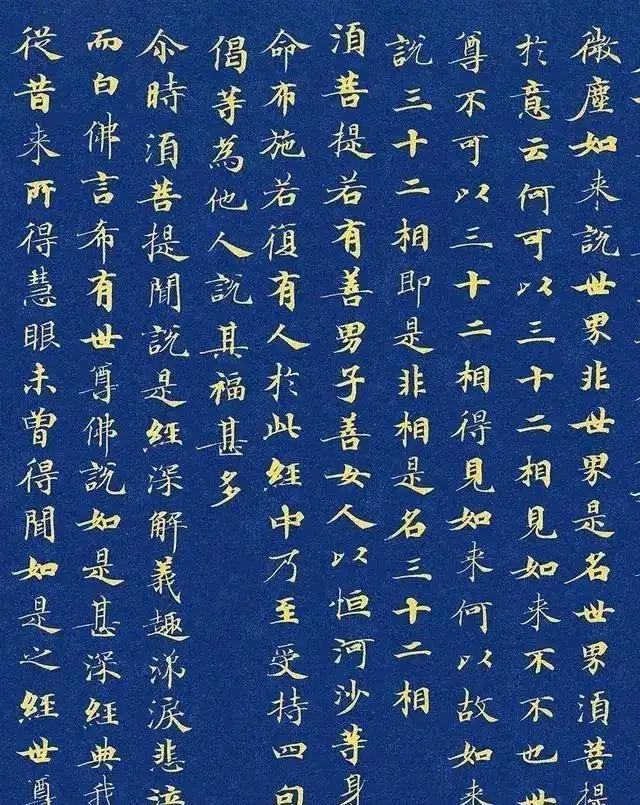 微塵如来說世界非世界是名世界湏菩提
扵意云何可以三十二相見如来不不也世
尊不可以三十二相得見如来何以故如来
說三十二相即是非相是名三十二相
湏菩提若有善男子善女人以恒河沙等身
命布施若復有人扵此經中乃至受持四句
偈等為他人說其福甚多
尒時湏菩提聞說是經深解義趣涕淚悲泣
而白佛言希有世尊佛說如是甚深經典我
從昔来所得慧眼未曾得聞如是之經世尊